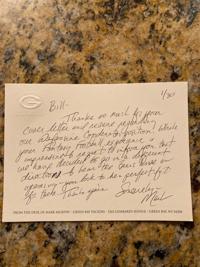 1/30
Bill-
Thanks so much for your
cover letter and resume regarding
our Defensive Coordinator position! While
your Fantasy Football experience is
impressive, I regret to inform you that
we have decided to go in a different
direction. To hear the
opening you
Thanks again
Sincerely,
Mark
FROM THE DESK OF MARK MURPHY · GREEN BAY PACKERS · 1265 LOMBARDI AVENUE · GREEN BAY, WI 54304